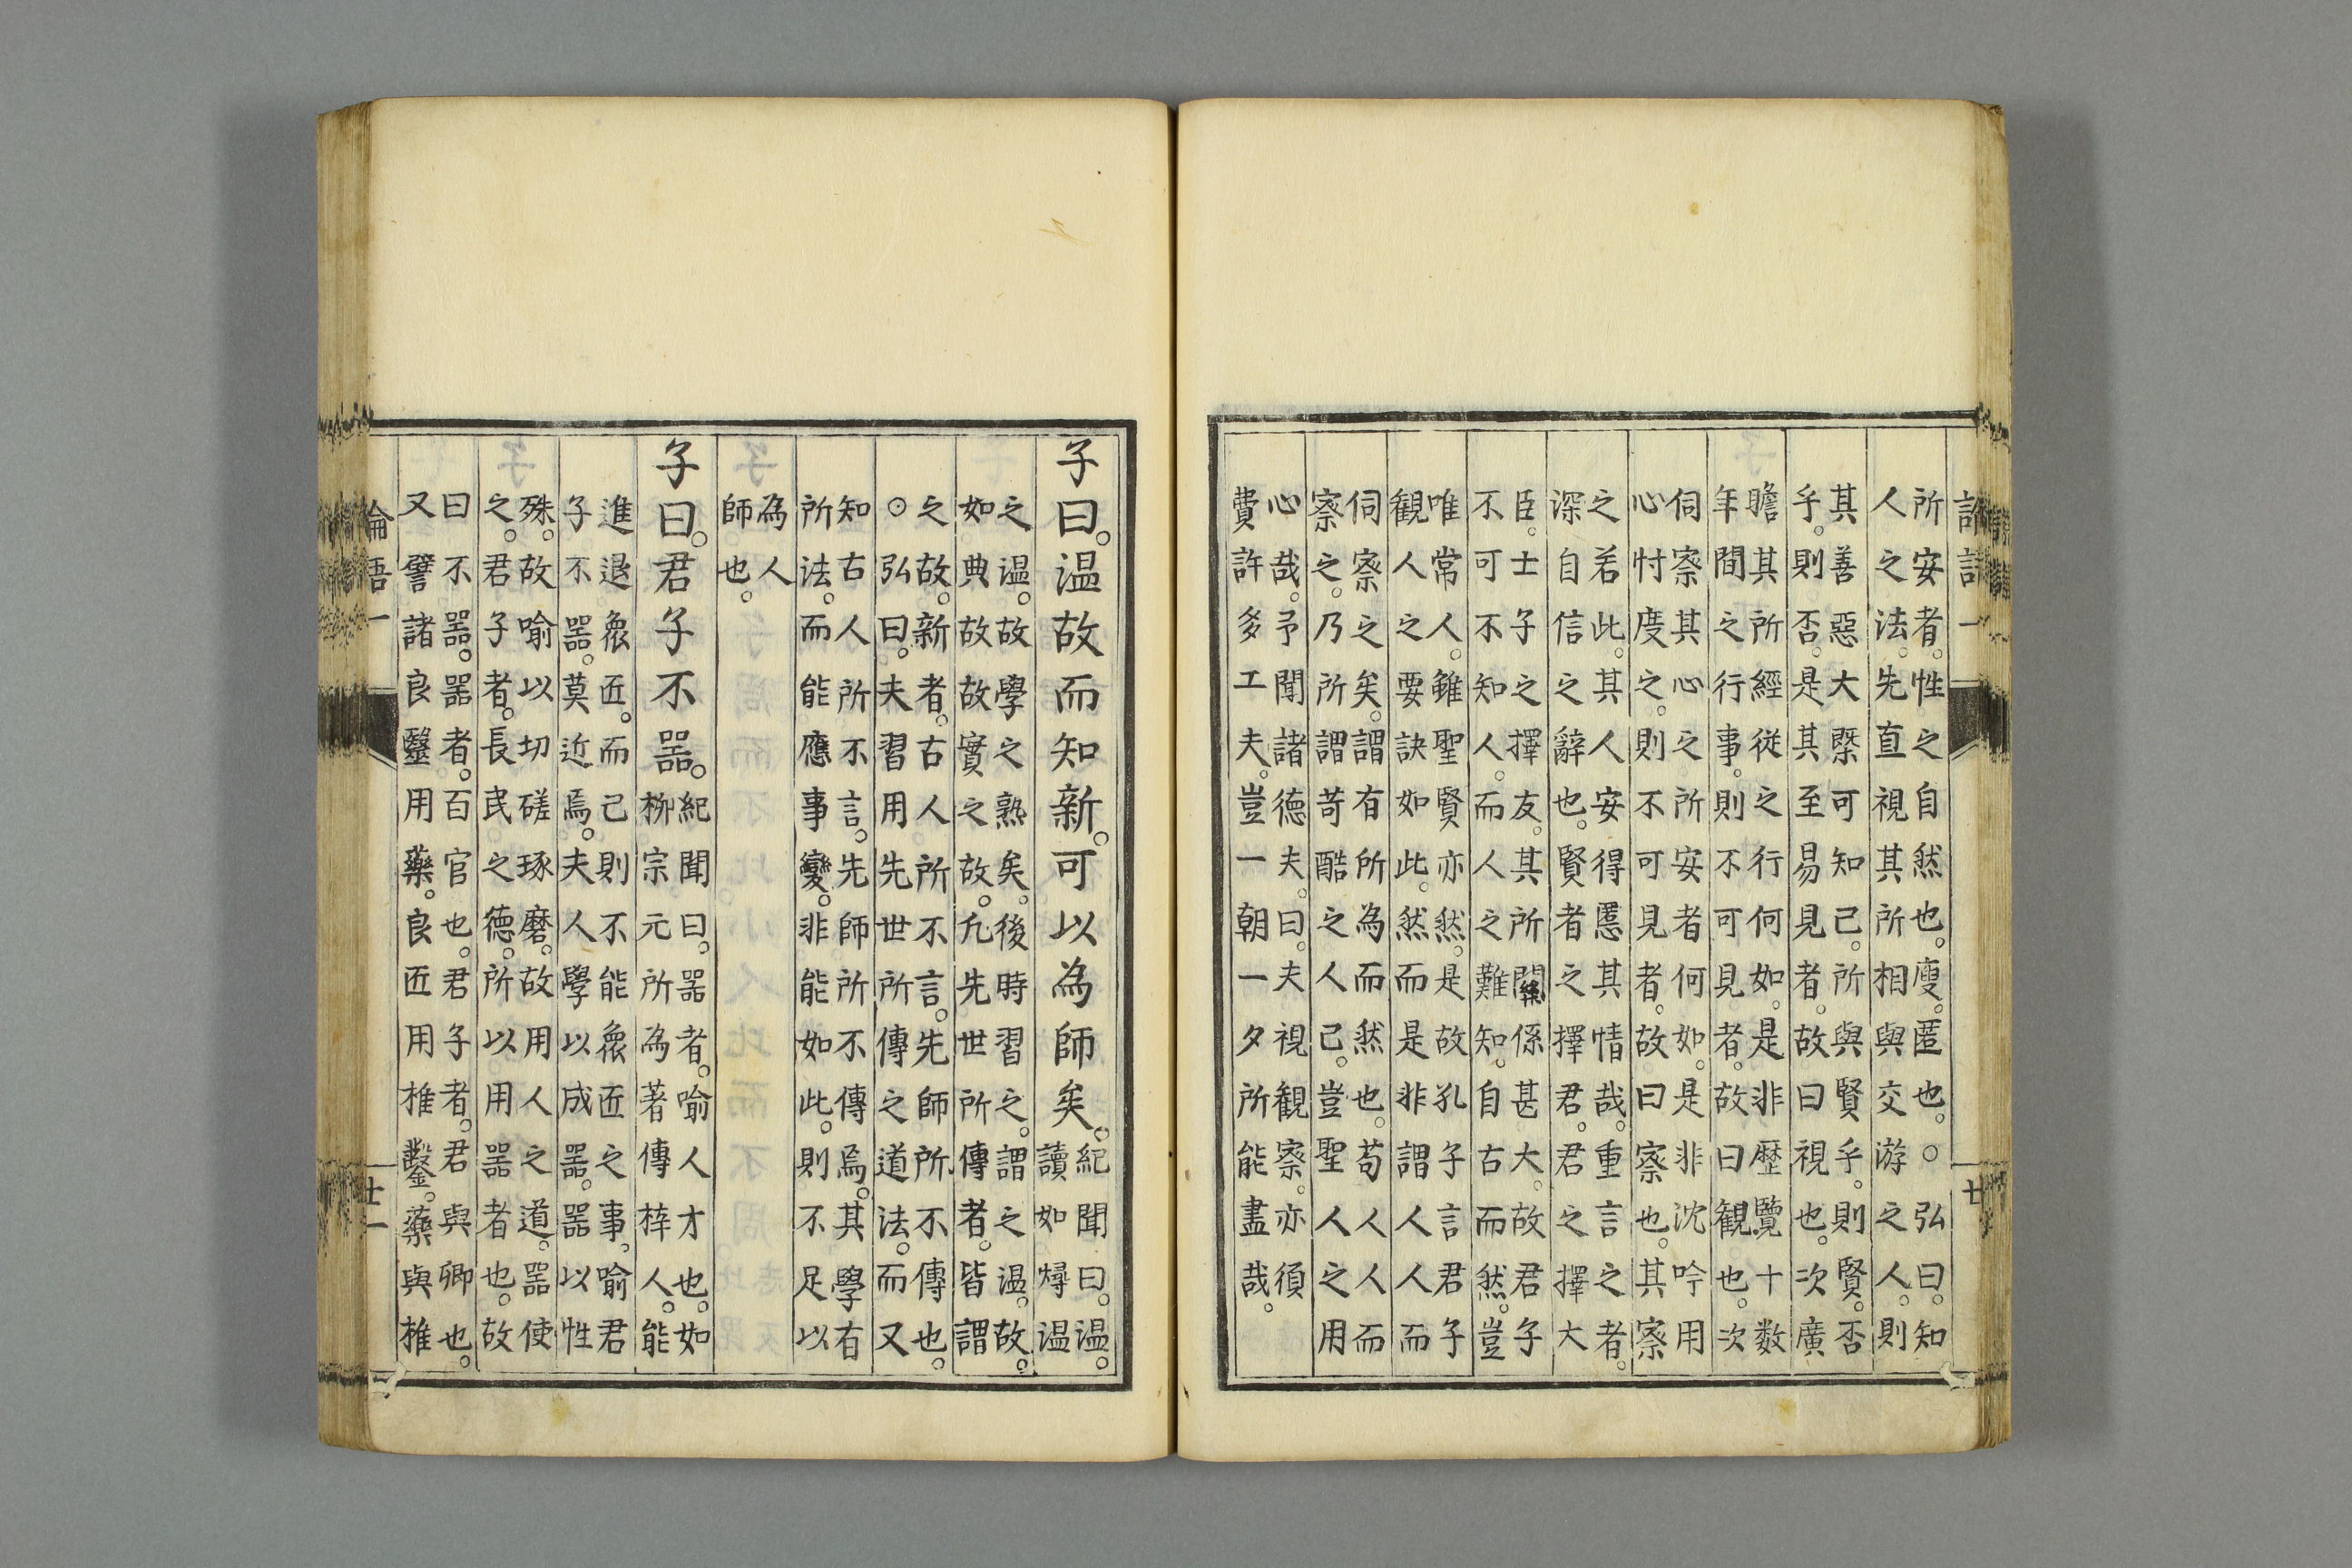 所安者。性之自然也。廋。匿也。○弘曰。知
人之法。先直視其所相與交游之人。則
其善惡大槩可知己。所與賢乎。則賢。否
乎。則否。是其至易見者。故曰視也。次廣
瞻其所經從之行何如。是非歴覽十数
年間之行事。則不可見者。故曰観也。次
伺察其心之所安者何如。是非沈吟用
心忖度之。則不可見者。故曰察也。其察
之若此。其人安得慝其情哉。重言之者。
深自信之辭也。賢者之擇君。君之擇大
臣。士子之擇友。其所關係甚大。故君子
不可不知人。而人之難知。自古而然。豈
唯常人。雖聖賢亦然。是故孔子言君子
観人之要訣如此。然而是非謂人人而
伺察之矣。謂有所為而然也。苟人人而
察之。乃所謂苛酷之人己。豈聖人之用
心哉。予聞諸德夫。曰。夫視観察。亦須
費許多工夫。豈一朝一夕所能盡哉。
十
子曰。温故而知新。可以為師矣。
紀聞曰。温。
讀如燖温
之温。故學之熟矣。後時習之。謂之温。故。
如典故故實之故。凡先世所傳者。皆謂
之故。新者。古人所不言。先師所不傳也。
○弘曰。夫習用先世所傳之道法。而又
知古人所不言。先師所不傳焉。其學有
所法。而能應事變。非能如此。則不足以
為人
師也。
子曰。君子不器。
紀聞曰。器者。喻人才也。如
柳宗元所為著傳梓人。能
進退衆匠。而己則不能衆匠之事。喻君
子不器。莫近焉。夫人學以成器。器以性
殊。故喻以切磋琢磨。故用人之道。器使
之。君子者。長民之德。所以用器者也。故
曰不器。器者。百官也。君子者。君與卿也。
又譬諸良毉用藥。良匠用椎鑿。藥與椎
論語一
十一